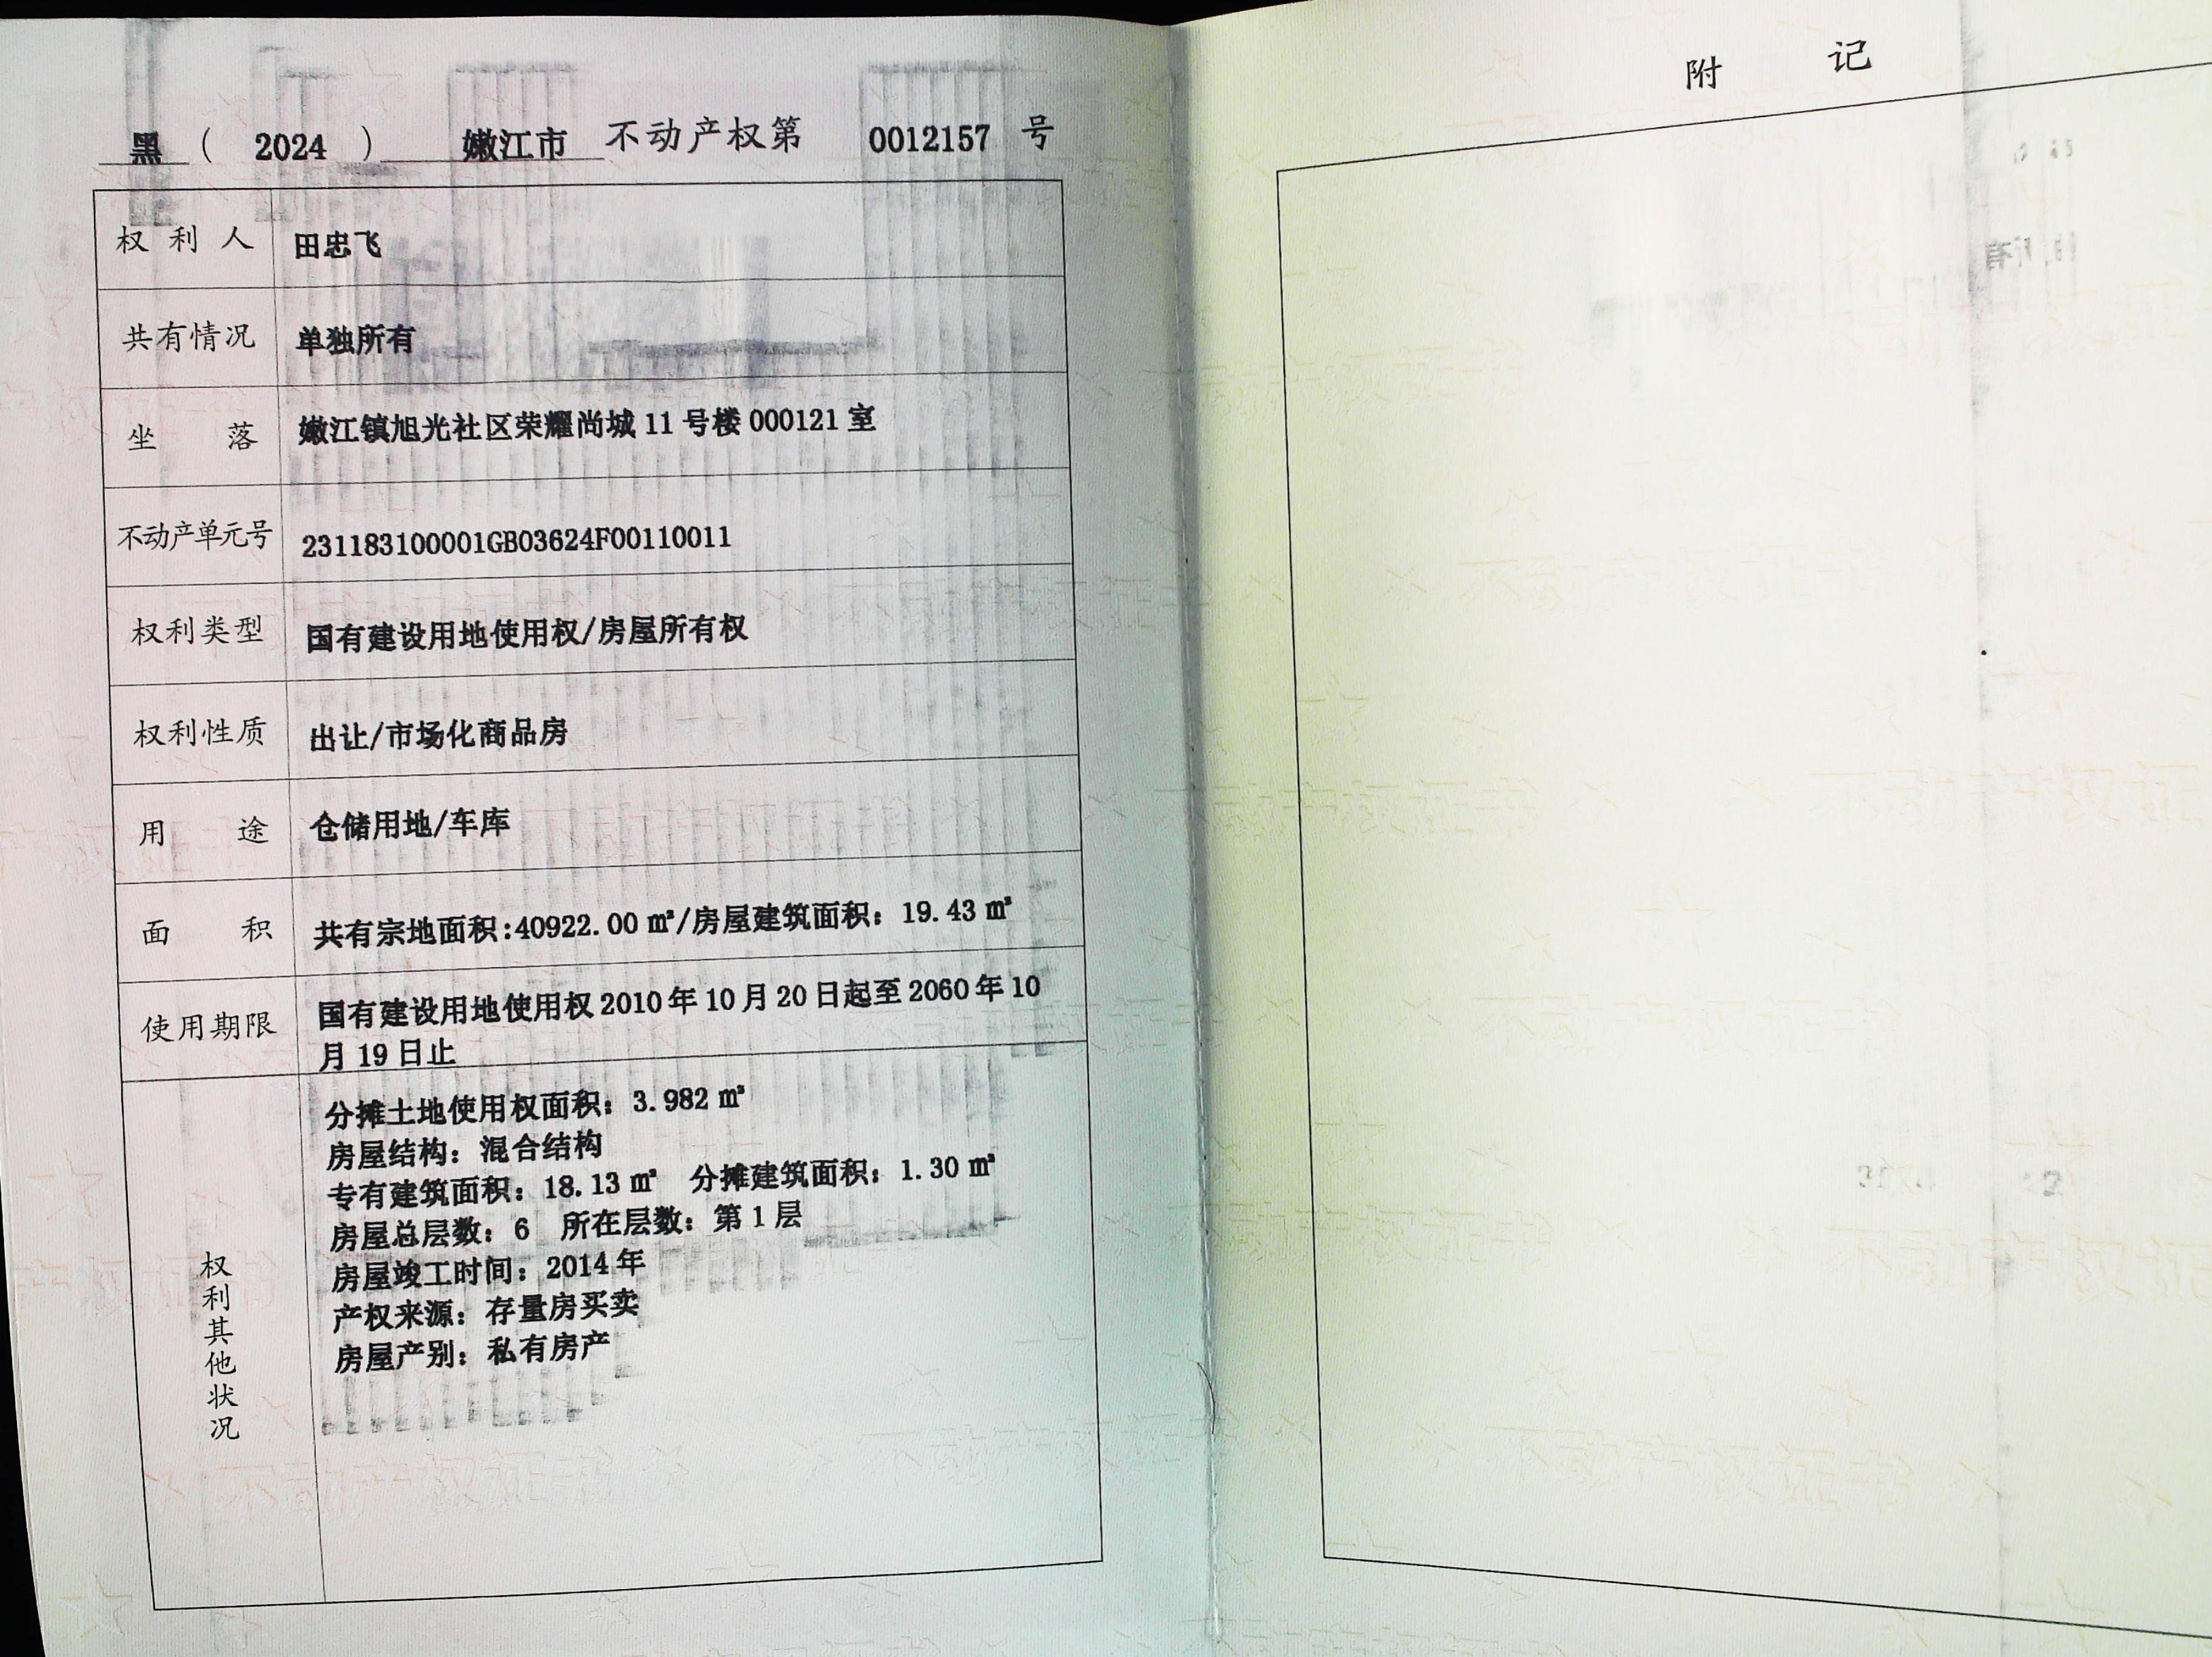 黑 ( 2024 ) 嫩江市 不动产权第 0012157 号
权利人 田忠飞
共有情况 单独所有
坐落 嫩江镇旭光社区荣耀尚城 11 号楼 000121 室
不动产单元号 231183100001GB03624F00110011
权利类型 国有建设用地使用权/房屋所有权
权利性质 出让/市场化商品房
用途 仓储用地/车库
面积 共有宗地面积:40922.00 ㎡/房屋建筑面积：19.43 ㎡
使用期限 国有建设用地使用权 2010 年 10 月 20 日起至 2060 年 10
月 19 日止
权利其他状况
分摊土地使用权面积：3.982 ㎡
房屋结构：混合结构
专有建筑面积：18.13 ㎡ 分摊建筑面积：1.30 ㎡
房屋总层数：6 所在层数：第 1 层
房屋竣工时间：2014 年
产权来源：存量房买卖
房屋产别：私有房产
附 记